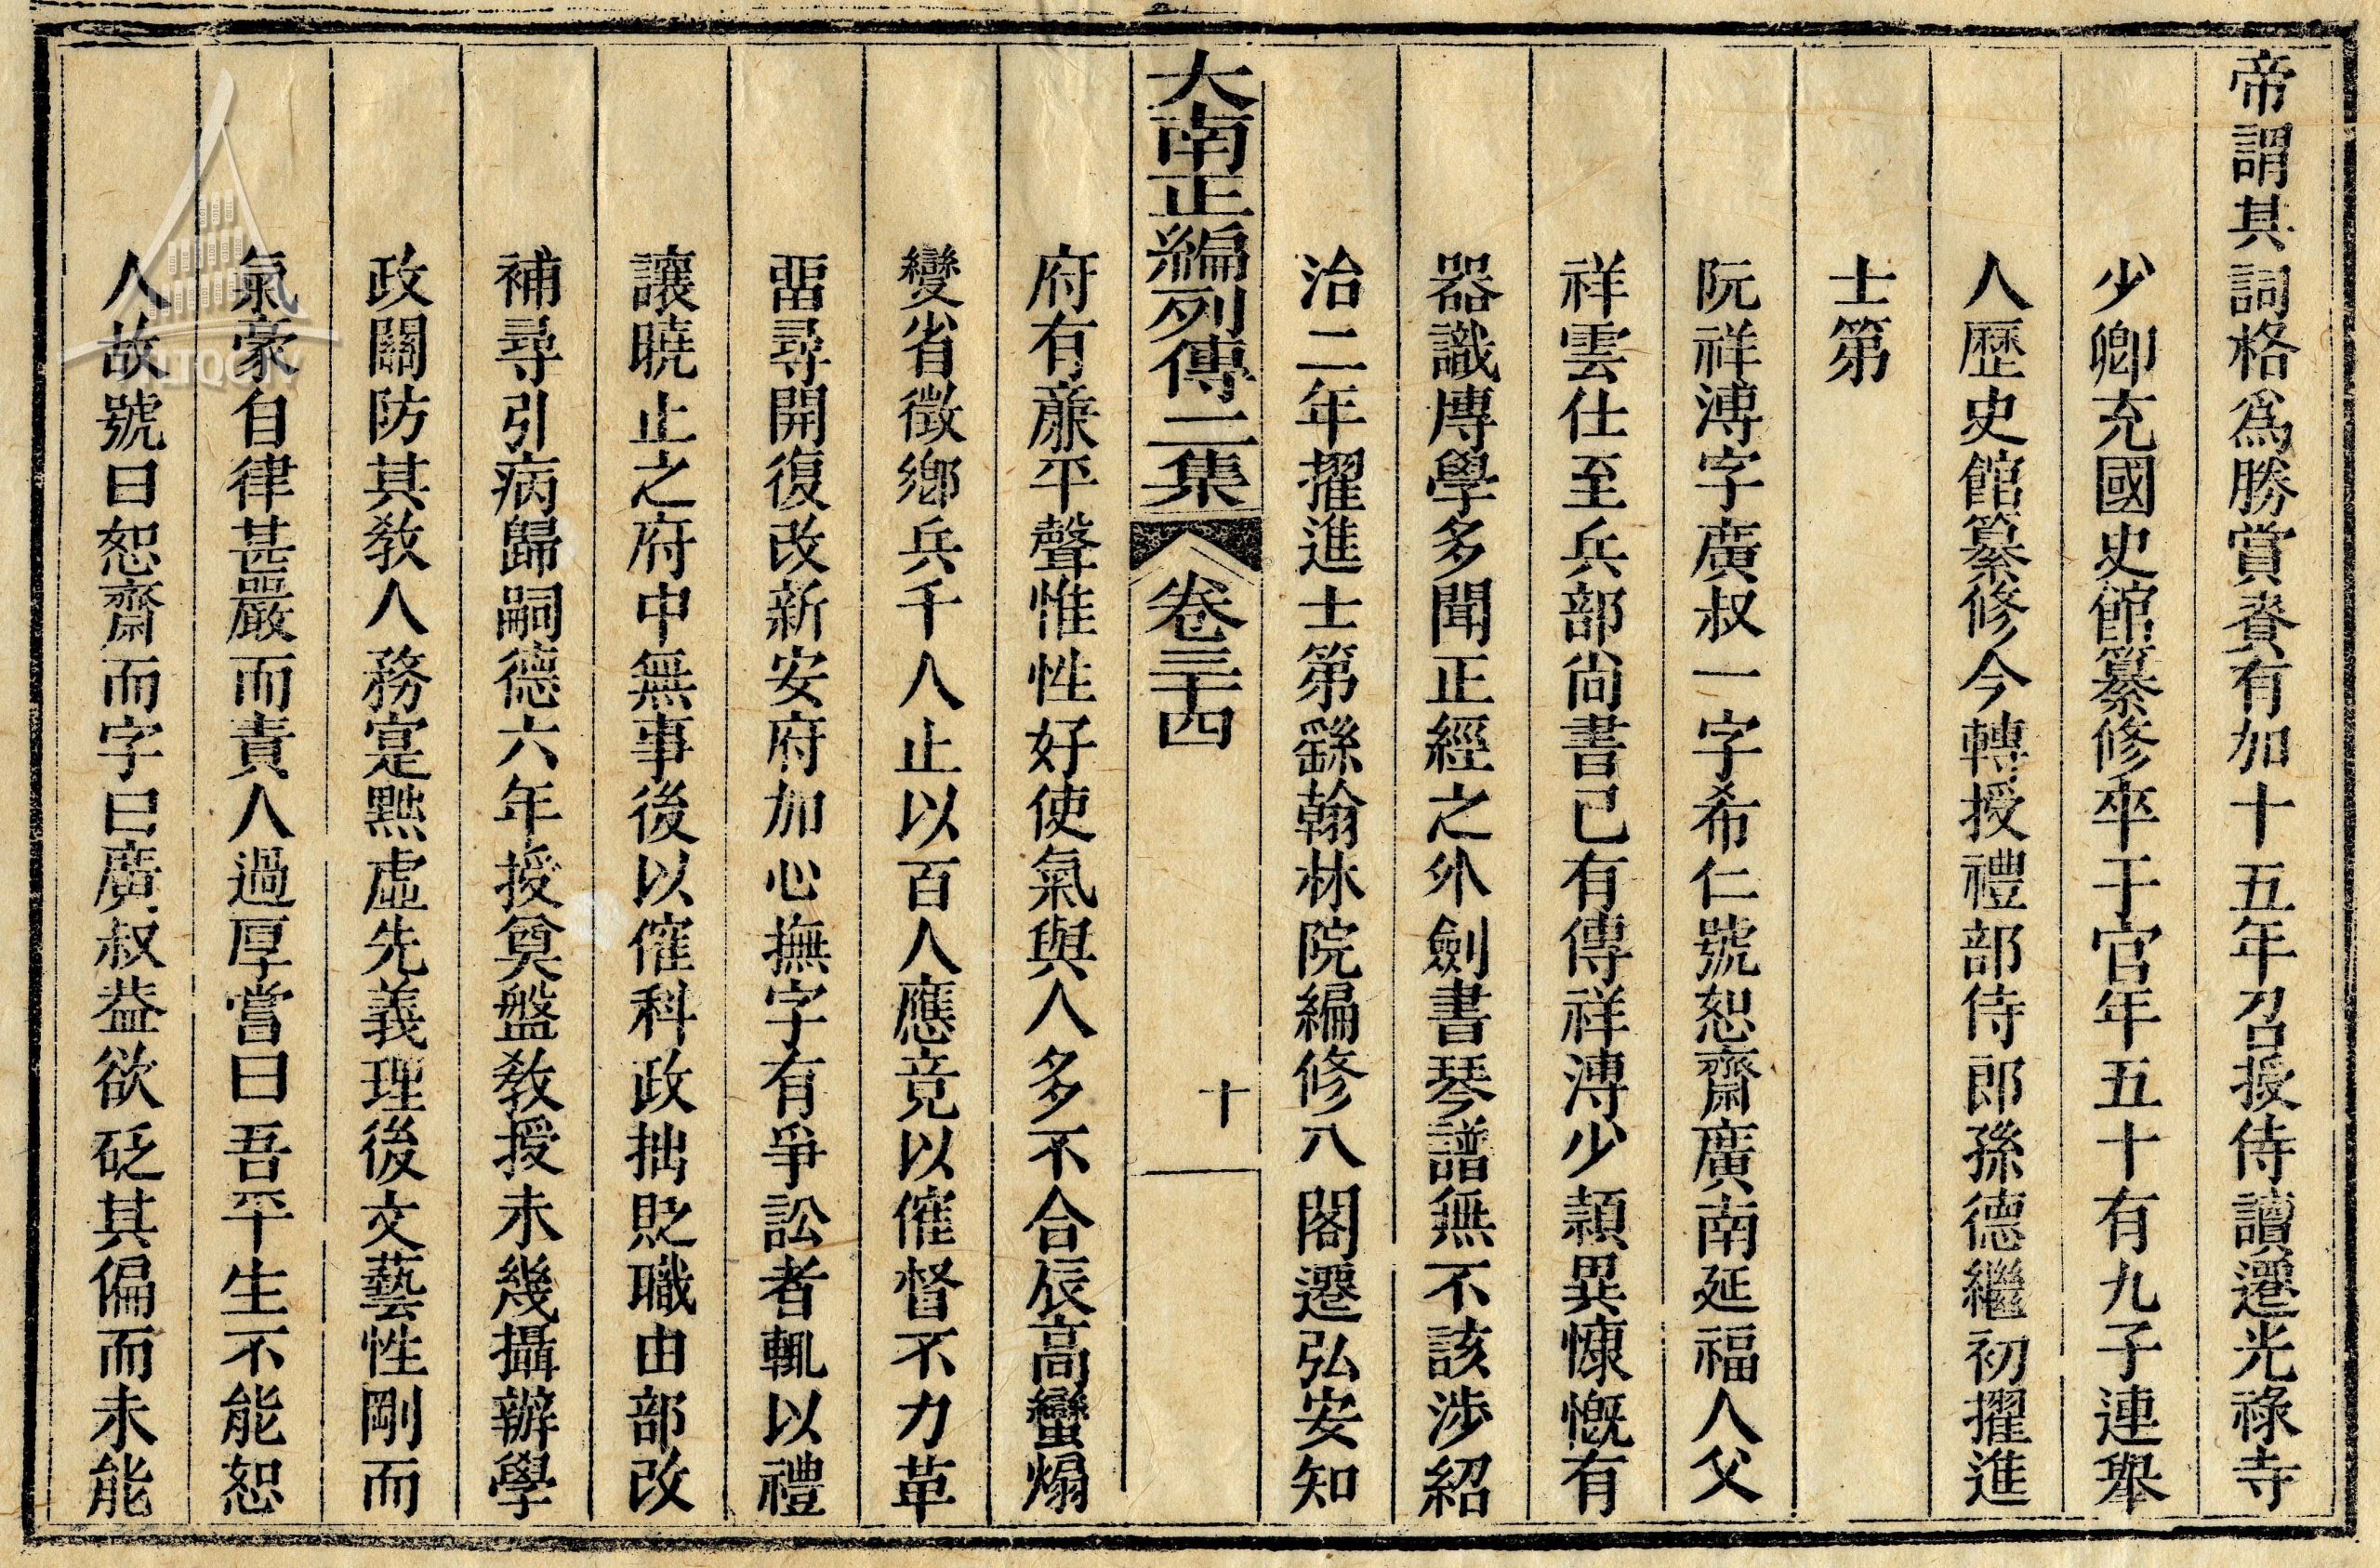 帝謂其詞格爲勝賞賚有加十五年召授侍讀遷光祿寺
少卿充國史館纂修卒于官年五十有九子連舉
人歷史館纂修今轉授禮部侍郎孫德繼初擢進
士第
阮祥溥字廣叔一字希仁號恕齋廣南延福人父
祥雲仕至兵部尚書已有傳祥溥少穎異慷慨有
器識博學多聞正經之外劍書琴譜無不該涉紹
治二年擢進士第繇翰林院編修入閣遷弘安知
大南正編列傳二集 卷三十四 十
府有亷平聲惟性好使氣與人多不合辰高蠻煽
變省徵鄉兵千人止以百人應竟以催督不力革
畱尋開復改新安府加心撫字有爭訟者輒以禮
讓曉止之府中無事後以催科政拙貶職由部改
補尋引病歸嗣德六年授奠盤教授未幾攝辦學
政關防其教人務寔黜虛先義理後文藝性剛而
氣豪自律甚嚴而責人過厚嘗曰吾平生不能恕
人故號曰恕齋而字曰廣叔葢欲砭其偏而未能